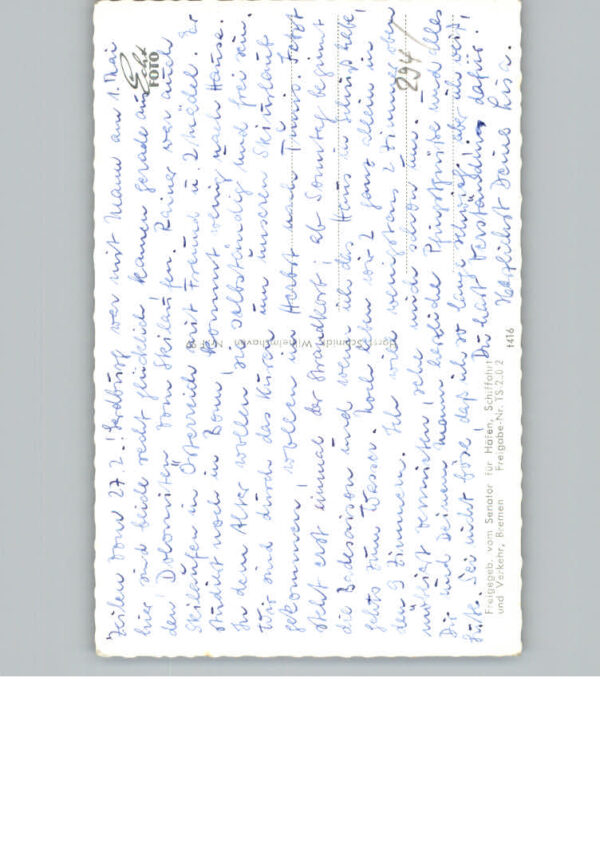 Zeilen vom 27.2.! Gerdburg war mit Mann am 1. Mai
hier, sind beide recht glücklich, kamen gerade aus
den Dolomiten vom Skilaufen. Rainer war auch
Skilaufen in Österreich mit Freund u. 2 Mädel. Er
studiert noch in Bonn, kommt wenig nach Hause.
In dem Alter wollen sie selbständig und frei sein.
Wir sind durch das Kuren um unseren Skiurlaub
gekommen! Wollen im Herbst nach Jetzt
steht erst einmal der Strandkorb! ab Sonntag beginnt
die Badesaison und wenn ich das Haus in Schuss habe,
gehts zum Wasser. Noch leben wir 2 ganz allein in
den 9 Zimmern. Ich will wenigstens 2 Zimmer oben
vermieten, sehe mich schon um. Für
Dir und Deinem Mann herzliche Pfingstgrüße und alles
Gute. Sei nicht böse, daß ich so lang schwieg, aber ich weiß,
Du hast Verständnis dafür.
Herzlichst Deine Lisa.
Echt
FOTO
294/
Horst Schmidt, Wilhelmshaven
Freigegeb. vom Senator für Häfen, Schiffahrt
und Verkehr, Bremen Freigabe-Nr. TS 2.0 2
t416